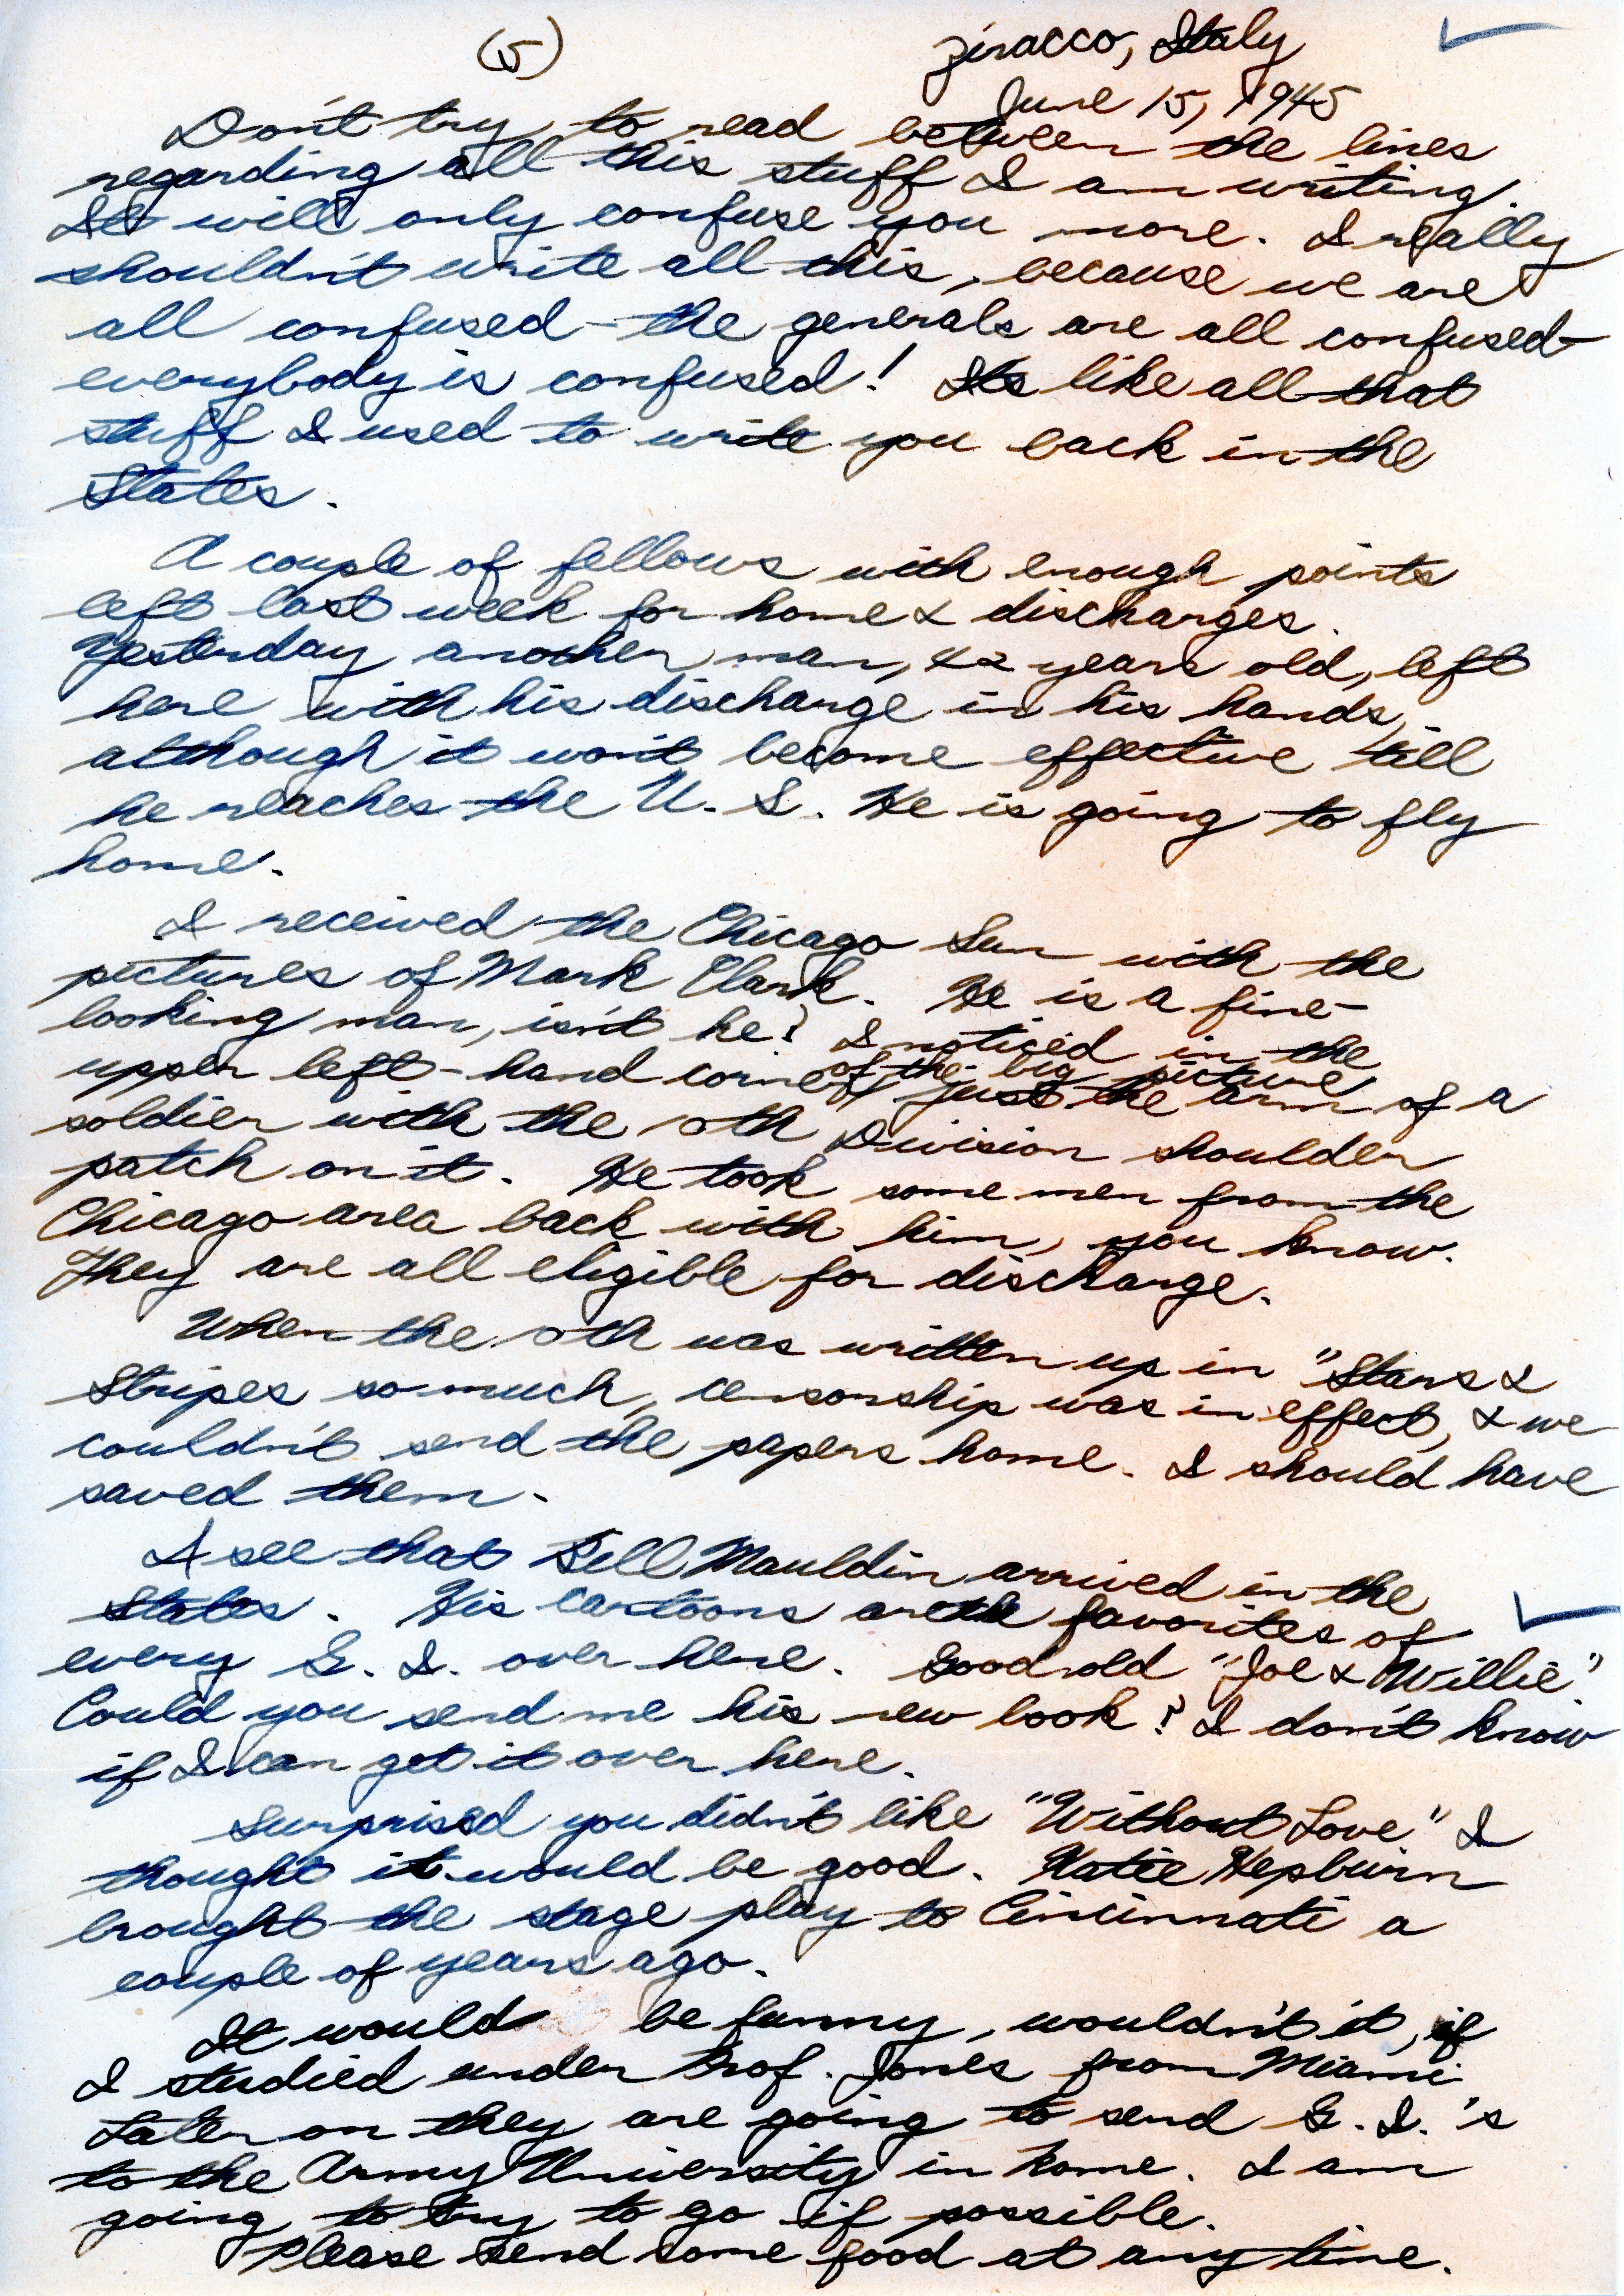 (5)
Ziracco, Italy
June 15, 1945
Don't try to read between the lines
regarding all this stuff I am writing.
It will only confuse you more. I really
shouldn't write all this, because we are
all confused - the generals are all confused -
everybody is confused! Its like all that
stuff I used to write you back in the
States.
A couple of fellows with enough points
left last week for home & discharges.
Yesterday another man, 42 years old, left
here with his discharge in his hands,
although it won't become effective till
he reaches the U. S. He is going to fly
home.
I received the Chicago Sun with the
pictures of Mark Clark. He is a fine-
looking man, isn't he? I noticed in the
of the big picture
upper left-hand corner just the arm of a
soldier with the 10th Division shoulder
patch on it. He took some men from the
Chicago area back with him, you know.
They are all eligible for discharge.
When the 10th was written up in "Stars &
Stripes so much, censorship was in effect, & we
couldn't send the papers home. I should have
saved them.
I see that Bill Mauldin arrived in the
States. His cartoons are the favorites of
every G. I. over here. Good old "Joe & Willie."
Could you send me his new book? I don't know
if I can get it over here.
Surprised you didn't like "Without Love" I
thought it would be good. Katie Hepburn
brought the stage play to Cincinnati a
couple of years ago.
It would be funny, wouldn't it, if
I studied under Prof. Jones from Miami.
Later on they are going to send G. I.'s
to the Army University in Rome. I am
going to try to go if possible.
Please send some food at any time.